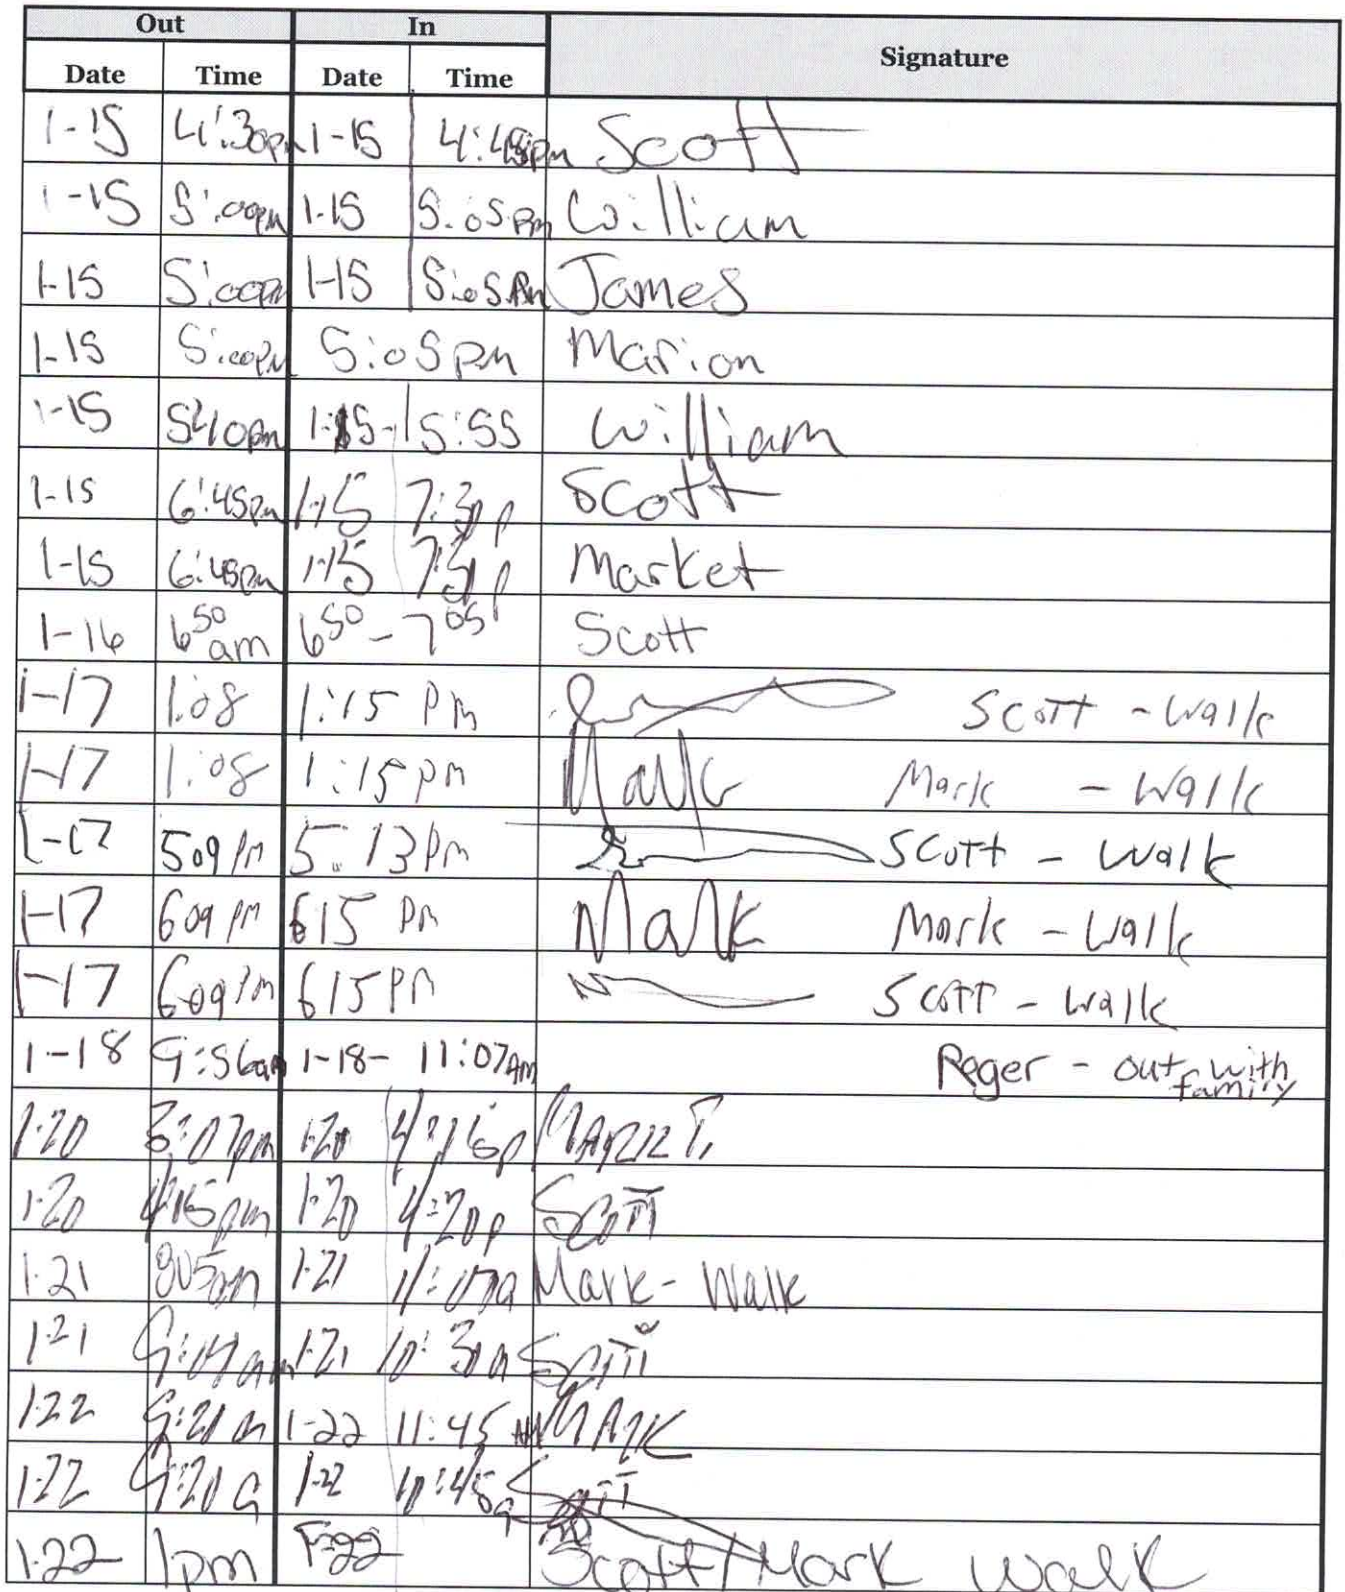 Out In Signature
Date Time Date Time
1-15 4:30pm 1-15 4:45pm Scott
1-15 5:00pm 1-15 5:05pm William
1-15 5:00pm 1-15 5:05pm James
1-15 5:00pm 5:05pm Marion
1-15 5:40pm 1-15- 5:55 William
1-15 6:45pm 1-15 7:30p Scott
1-15 6:45pm 1-15 Market
1-16 6 50 am 6 50 - 7 05 Scott
1-17 1:08 1:15 pm Scott - Walk
1-17 1:08 1:15pm Mark Mark - Walk
1-17 509 pm 5:13pm Scott - Walk
1-17 609 pm 615 pm Mark Mark - Walk
1-17 609pm 615pm Scott - Walk
1-18 9:56am 1-18- 11:07AM Roger - out with
family
1-20 3:07pm 1-20 MARK T.
1-20 4:15pm 1-20 4:20p Scott
1-21 805am 1-21 11:07a Mark - Walk
1-21 1-21 10:30a Scott
1-22 9:21a 1-22 11:45 AM MARK
1-22 9:20a 1-22 10:45a Scott
1-22 1pm Scott/Mark Walk